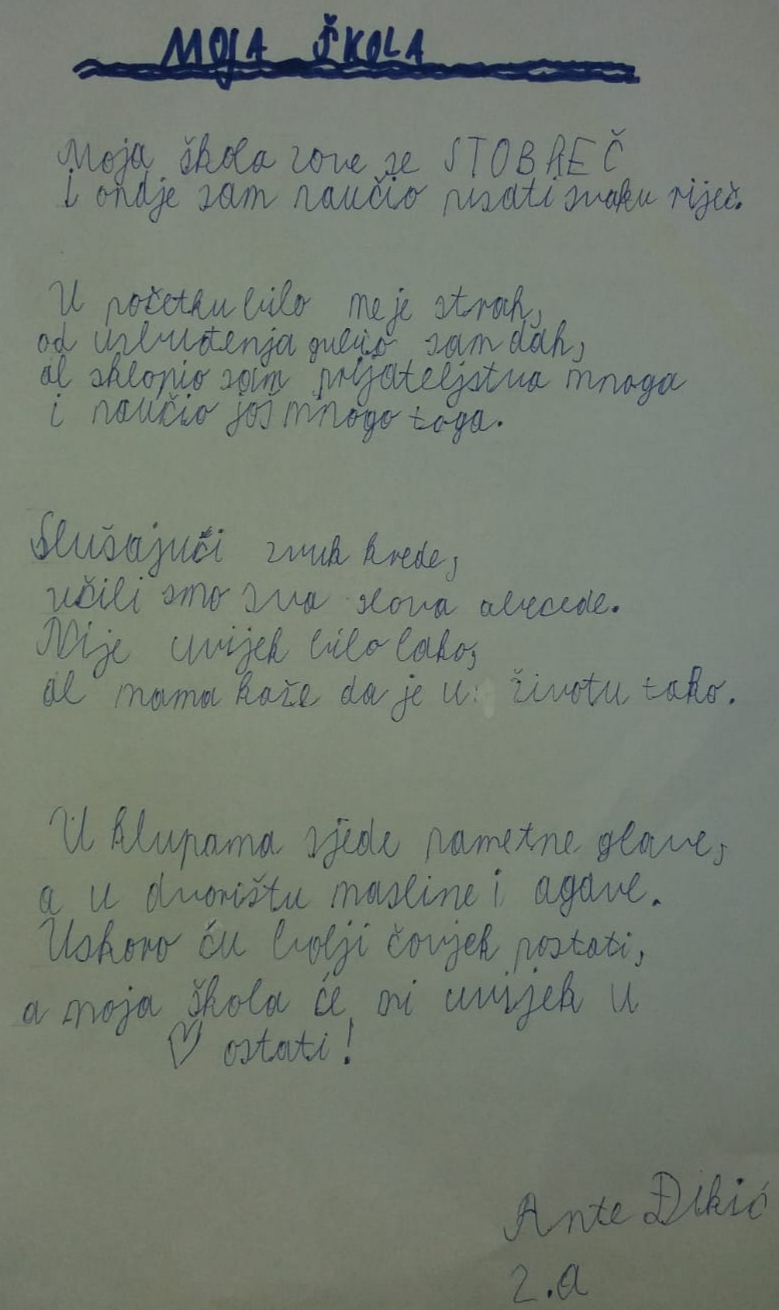 MOJA ŠKOLA
Moja škola zove se STOBREČ
i ondje sam naučio pisati svaku riječ.
U početku bilo me je strah,
od uzbuđenja gubio sam dah,
al sklopio sam prijateljstva mnoga
i naučio još mnogo toga.
Slušajući zvuk krede,
učili smo sva slova abecede.
Nije uvijek bilo lako,
al mama kaže da je u životu tako.
U klupama sjede pametne glave,
a u dvorištu masline i agave.
Uskoro ću bolji čovjek postati,
a moja škola će mi uvijek u
♡ ostati!
Ante Đikić
2.a